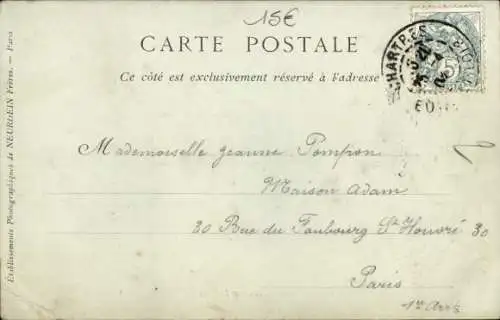 15€
CARTE POSTALE
Ce côté est exclusivement réservé à l'adresse
CHARTRES
5
Mademoiselle Jeanne Pompon
Maison Adam
30 Rue du Faubourg St Honoré 30
Paris
Etablissements Photographiques de NEURDEIN Frères. — Paris